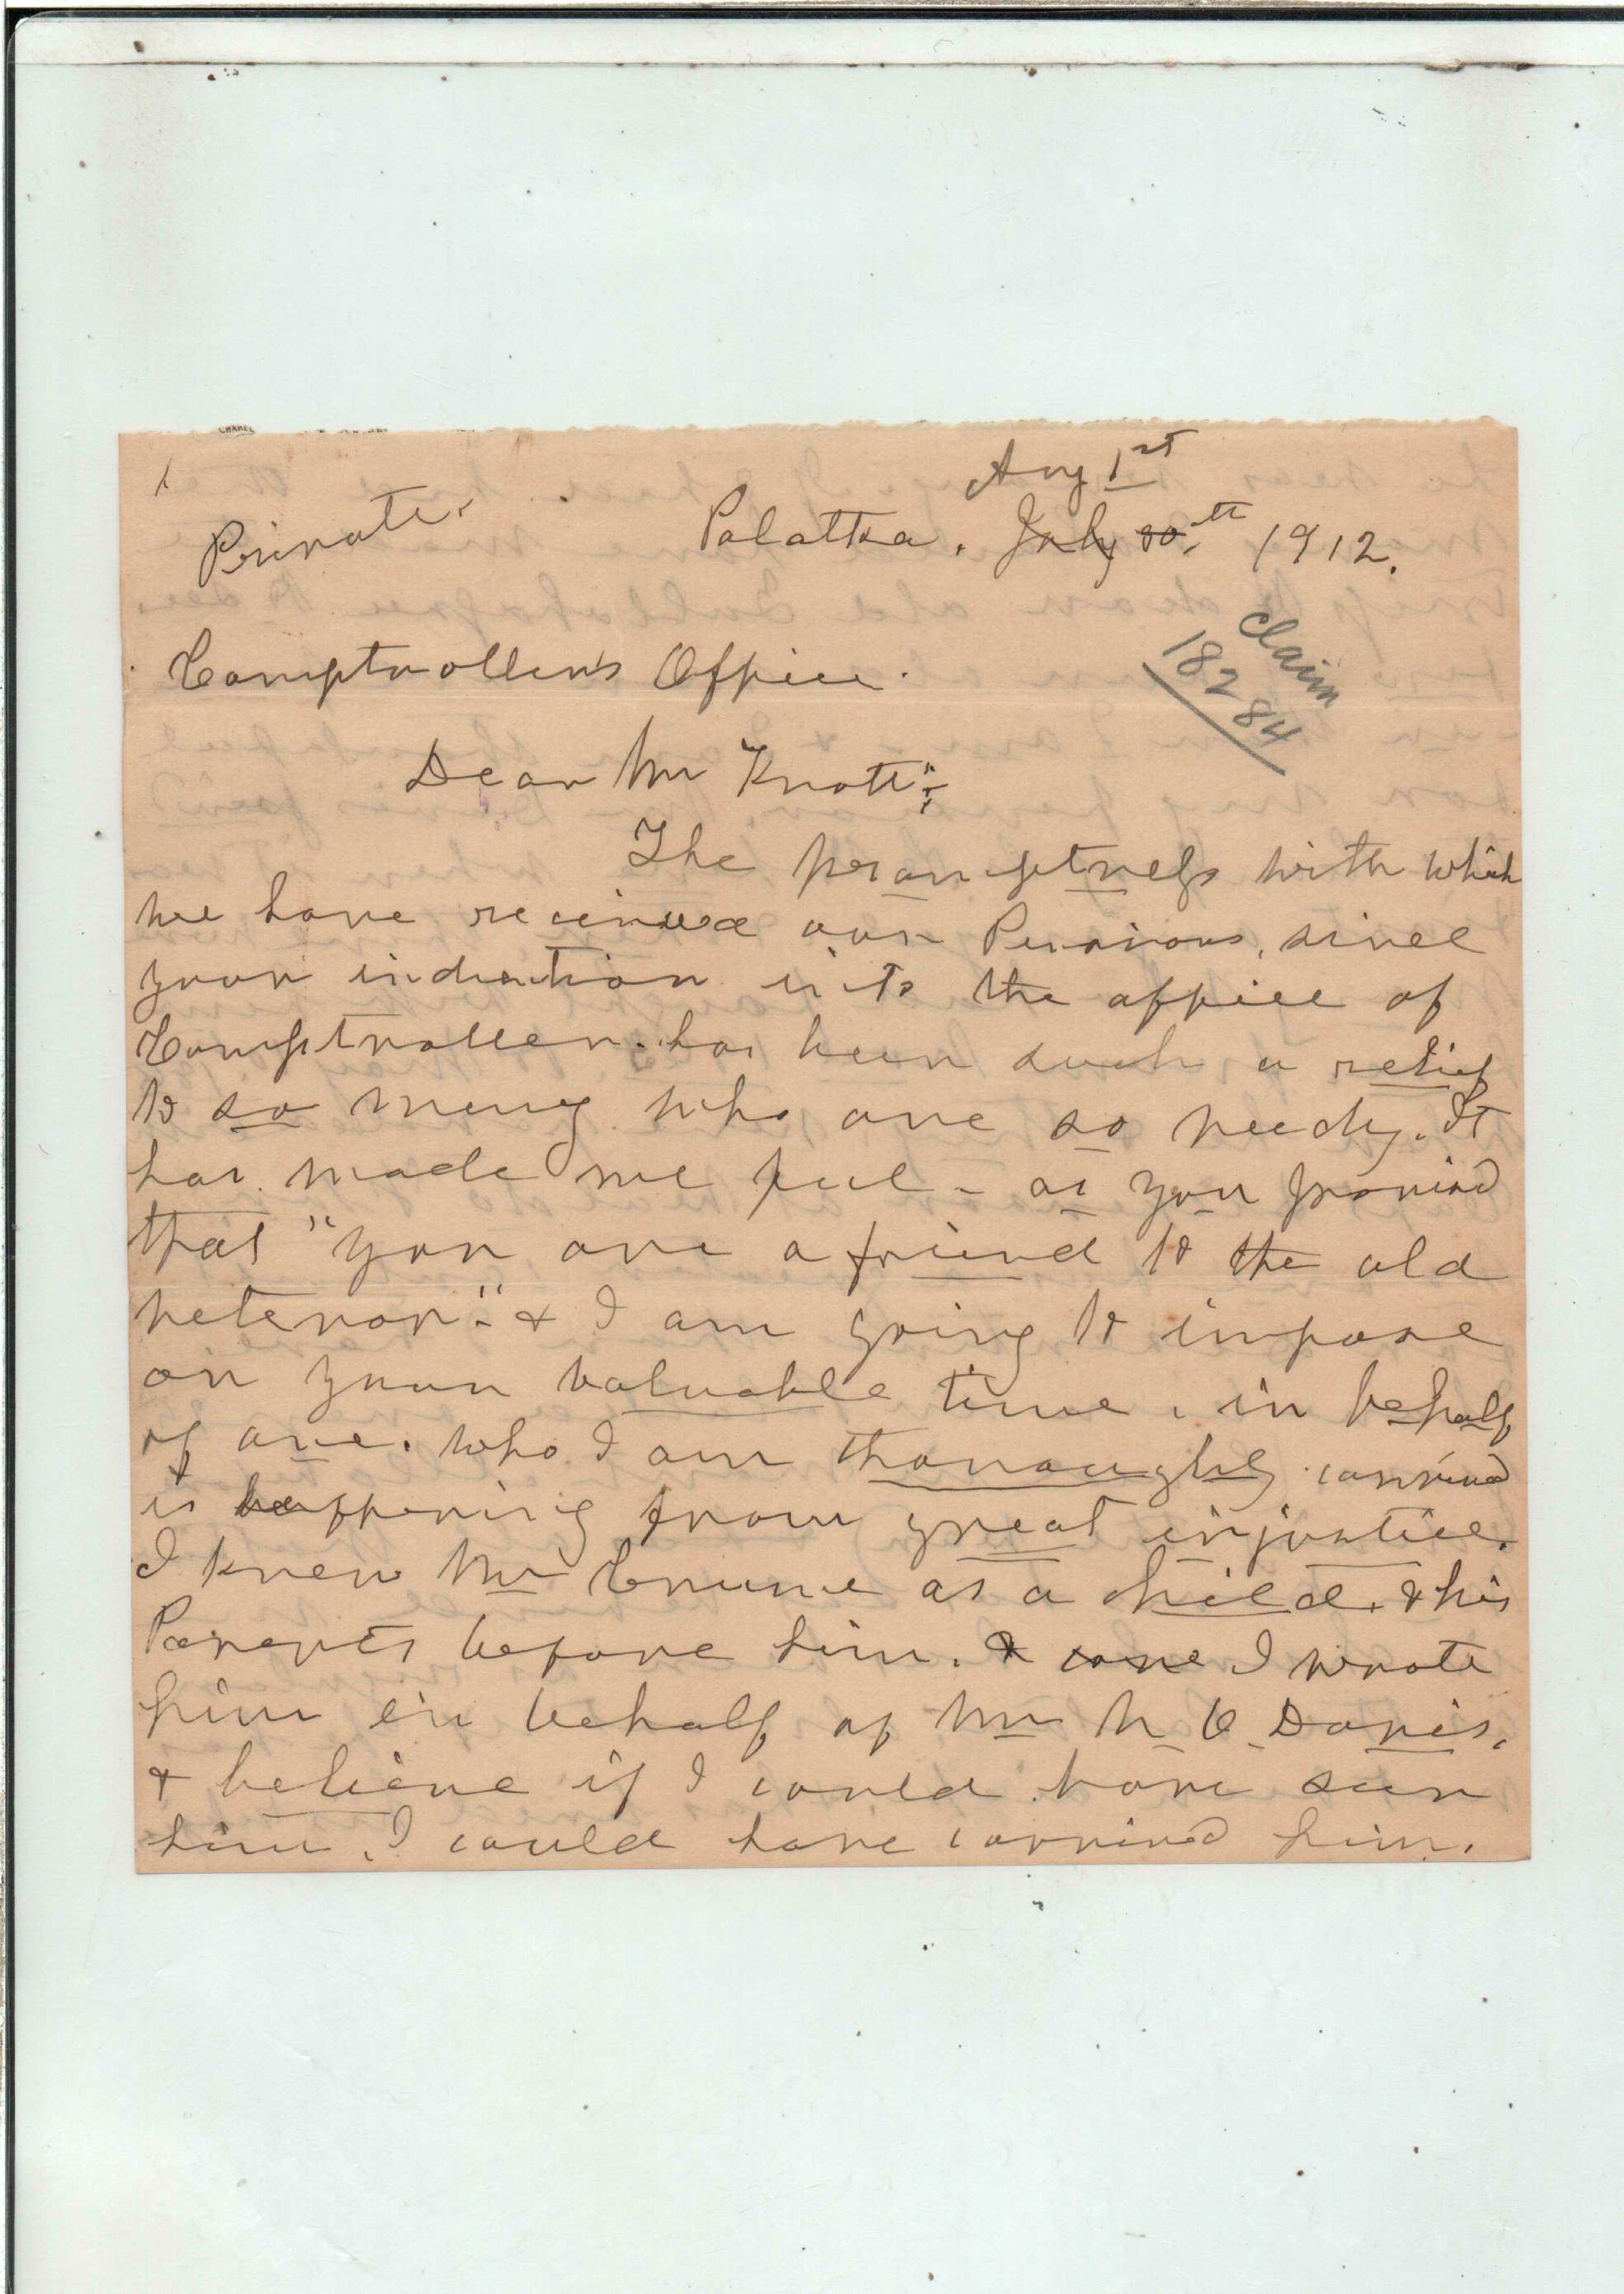 1
Aug 1st
Private.
Palatka. July 30th 1912.
Claim
18284
Comptroller's Office.
Dear Mr Knott;
The promptness with which
we have received our Pensions, since
your induction into the office of
Comptroller. has been such a relief
to so many who are so needy. It
has made me feel - as you promised
that "you are a friend to the old
veteran". & I am going to impose
on your valuable time, in behalf
of one. who I am thoroughly convinced
is suffering from great injustice.
I knew Mr Croom as a child. & his
Parents before him. & I wrote
him in behalf of Mr Davis.
& believe if I could have seen
him, I could have convinced him.